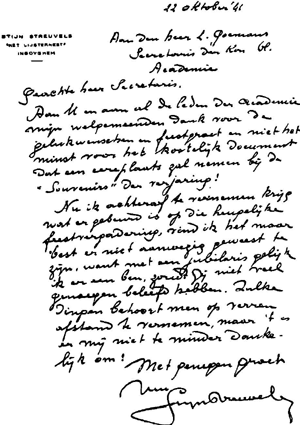 22 Oktober '41
STIJN STREUVELS
"HET LIJSTERNEST"
INGOYGHEM
Aan den heer L. Goemans
Secretaris der Kon. Vl.
Academie
Geachte heer Secretaris.
Aan U en aan al de leden der Academie
mijn welgemeenden dank voor de
gelukwenschen en feestgroet en niet het
minst voor het kostelijk document
dat een eereplaats zal nemen bij de
"Souvenirs" der verjaring!
Nu ik achteraf te vernemen krijg
wat er gebeurd is op die heugelijke
feestvergadering, vind ik het maar
best er niet aanwezig geweest te
zijn, want met een jubilaris gelijk
ik er een ben, zoudt gij niet veel
genoegen beleefd hebben. Zulke
dingen behoort men op verren
afstand te vernemen, maar 't is
er mij niet te minder danke-
lijk om!
Met genegen groet
Uw
Stijn Streuvels